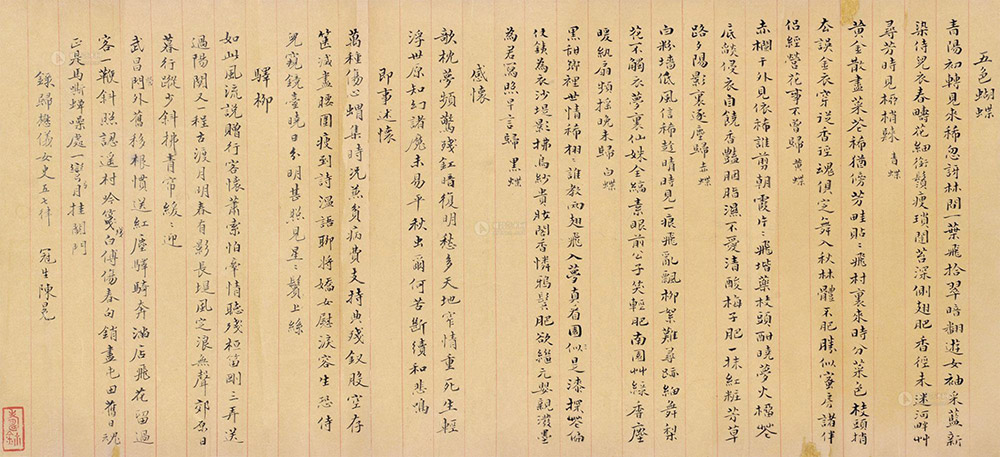 五色蝴蝶
青陽初轉見來稀忽訝林間一葉飛拾翠暗翻遊女袖采藍新
染侍兒衣春疇花細銜鬚瘦瑣闥苔深側翅肥香徑未迷河畔艸
尋芳時見柳梢歸 青蝶
黃金散盡菜苍稀猶傍芳畦貼〻飛村裏來時分菜色枝頭捎
去誤金衣穿從香徑魂俱定舞入秋林體不肥勝似蜜房諸伴
侶經營花事不曾歸 黃蝶
赤欄干外見依稀誰剪朝霞片〻飛堦藥枝頭酣曉夢火榴苍
底燄侵衣自饒香豔胭脂濕不愛清酸梅子肥一抹紅糚芳草
路夕陽影裏逐塵歸 赤蝶
白粉墻低風信稀趁晴時見一痕飛亂飄柳絮難尋跡細舞梨
花不觸衣夢裏仙姝全縞素眼前公子笑輕肥南園艸綠香塵
暖紈扇頻搖晚未歸 白蝶
黑甜鄉裡世情稀栩〻誰教向翅飛入夢真看園似是漆探苍偏
使鐵為衣沙堤影拂烏紗貴妝閣香憐鴉鬢肥欲繼元嬰親潑墨
為君寫照早言歸 黑蝶
感懷
歌枕夢頻驚殘釭暗復明愁多天地窄情重死生輕
浮世原知幻諸魔未易平秋虫爾何苦斷續和悲鳴
即事述懷
萬種傷心蝟集時況兼貧病費支持典殘釵股空存
篋減盡腰圍瘦到詩溫語聊將嬌女慰淚容生恐侍
兒窺鏡臺曉日分明甚照見星〻鬢上絲
驛柳
如此風流說贈行客懷蕭索怕牽情聽殘桓笛剛三弄送
過陽關又一程古渡月明春有影長堤風定浪無聲郊原日
暮行蹤少斜拂青帘緩〻迎
武昌門外舊移根慣送紅塵驛騎奔滿店飛花留過
客一鞭斜照認遙村吟箋白傅傷春句銷盡屯田舊日魂
正是馬嘶蟬噪處一彎月挂關門
錄歸懋儀女史五七律 冠生陳冕